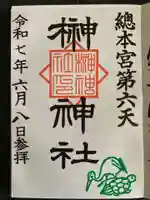 總本宮第六天
榊神社
榊神社
社印
令和七年六月八日参拝